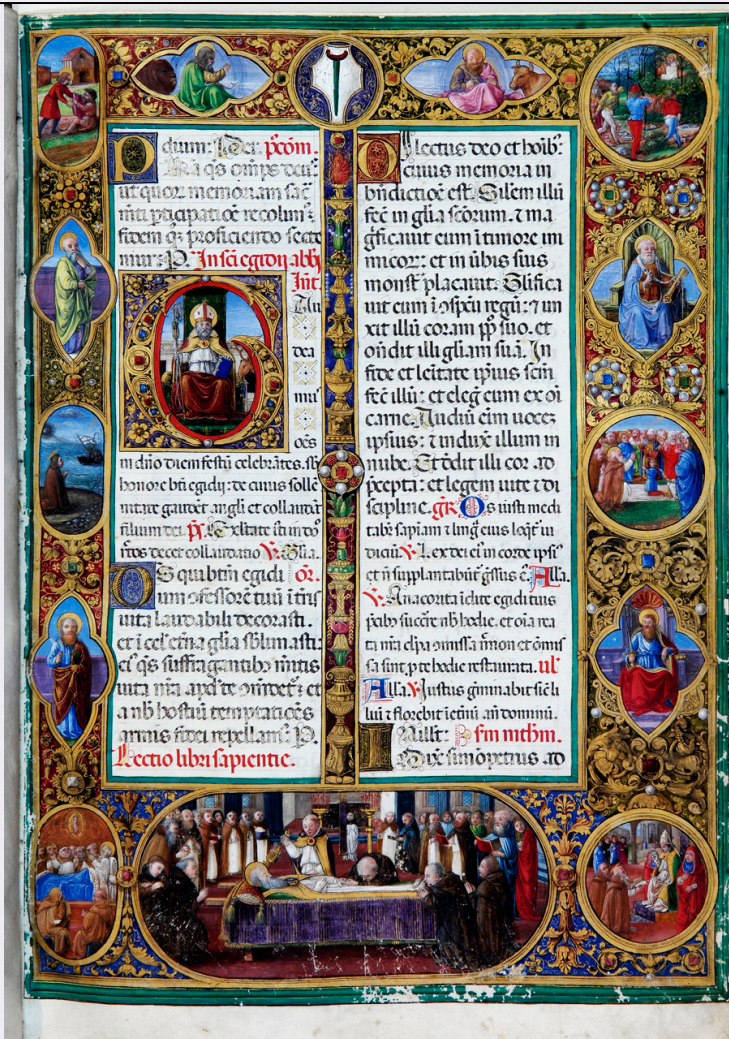 dium: Per. p̄cōm.
a q̄s om̄ps deus:
ut quoꝝ memoriam sac̄
mti p̄ticipatiōe recolim⁹:
fidem q̄z proficiendo secte
mur: P. In scī egidij abb̄
Int.
dea
mus
oēs
in dn̄o diem festū celebrātes. s̄
honore bt̄i egidij: de cuius solle
nitate gaudēt angli et collaudāt
filium dei. p̄s. Exultate iusti in do
rectos decet collaudatio. V. Gl̄ia.
DS qui btm̄ egidiū or̄.
um ɔfessorē tuū ītris
uita laudabili decorasti.
et ī cel' et̄na gl̄ia sblimasti:
suffragantibꝰ mitis
uita nr̄a apd' te et
a nb̄ hostiū temptatiōes
fidei repellam⁹. P.
Lectio libri sapientie.
Dilectus deo et hoib⁹:
cuius memoria in
bn̄dictiōe est. Silem illū
fēc in gl̄ia scōrum. ⁊ ma
gficauit eum ī timore ini
micoꝝ: et in ūbis suis
monst̄ placauit. Glifica
uit eum ī ɔspēu regū: ⁊ iu
xit illū coram pp̄ suo. et
on̄dit illi gliam suā. In
fide et leitate ip̄ius scm̄
fēc illū: et eleḡ eum ex oī
carne. Audiū eīm uocez
ipsius: ⁊ induxē illum in
nube. Et dēdit illi cor. ad
p̄cepta: et legem uite ⁊ di
scipline. gr̄. Os iusti medi
tabr̄ sapīam ⁊ linḡ eius loqēt' iu
diciū. V. Lex dei ei' in corde ipsi⁹
et n̄ supplantabūt' gssus ei'. All'a.
V. Anacorita īclite egidi tuis
p̄cibꝰ succ̄re nb̄ hodie. et oīa rea
ta nr̄a clpa omissa īmon et omis
sa sint p̄ te hodie restaurata. ul'
All'a V. Justus gminabit sic̄ li
liū ⁊ florebit īet̄nū añ dominū.
IN illt̄: Sm̄ mthm̄.
Dixē simō petrus ad